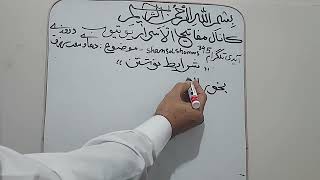 بسم الله الرحمن الرحیم
کانال مفاتیح الاسرار یوتیوب
آیدی تلگرام shamsolshomos - موضوع: دعا و
" شرایط نوشتن "
بخور